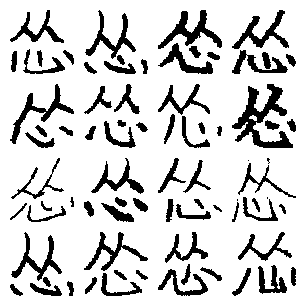 怂怂怂怂
怂怂怂怂
怂怂怂怂
怂怂怂怂